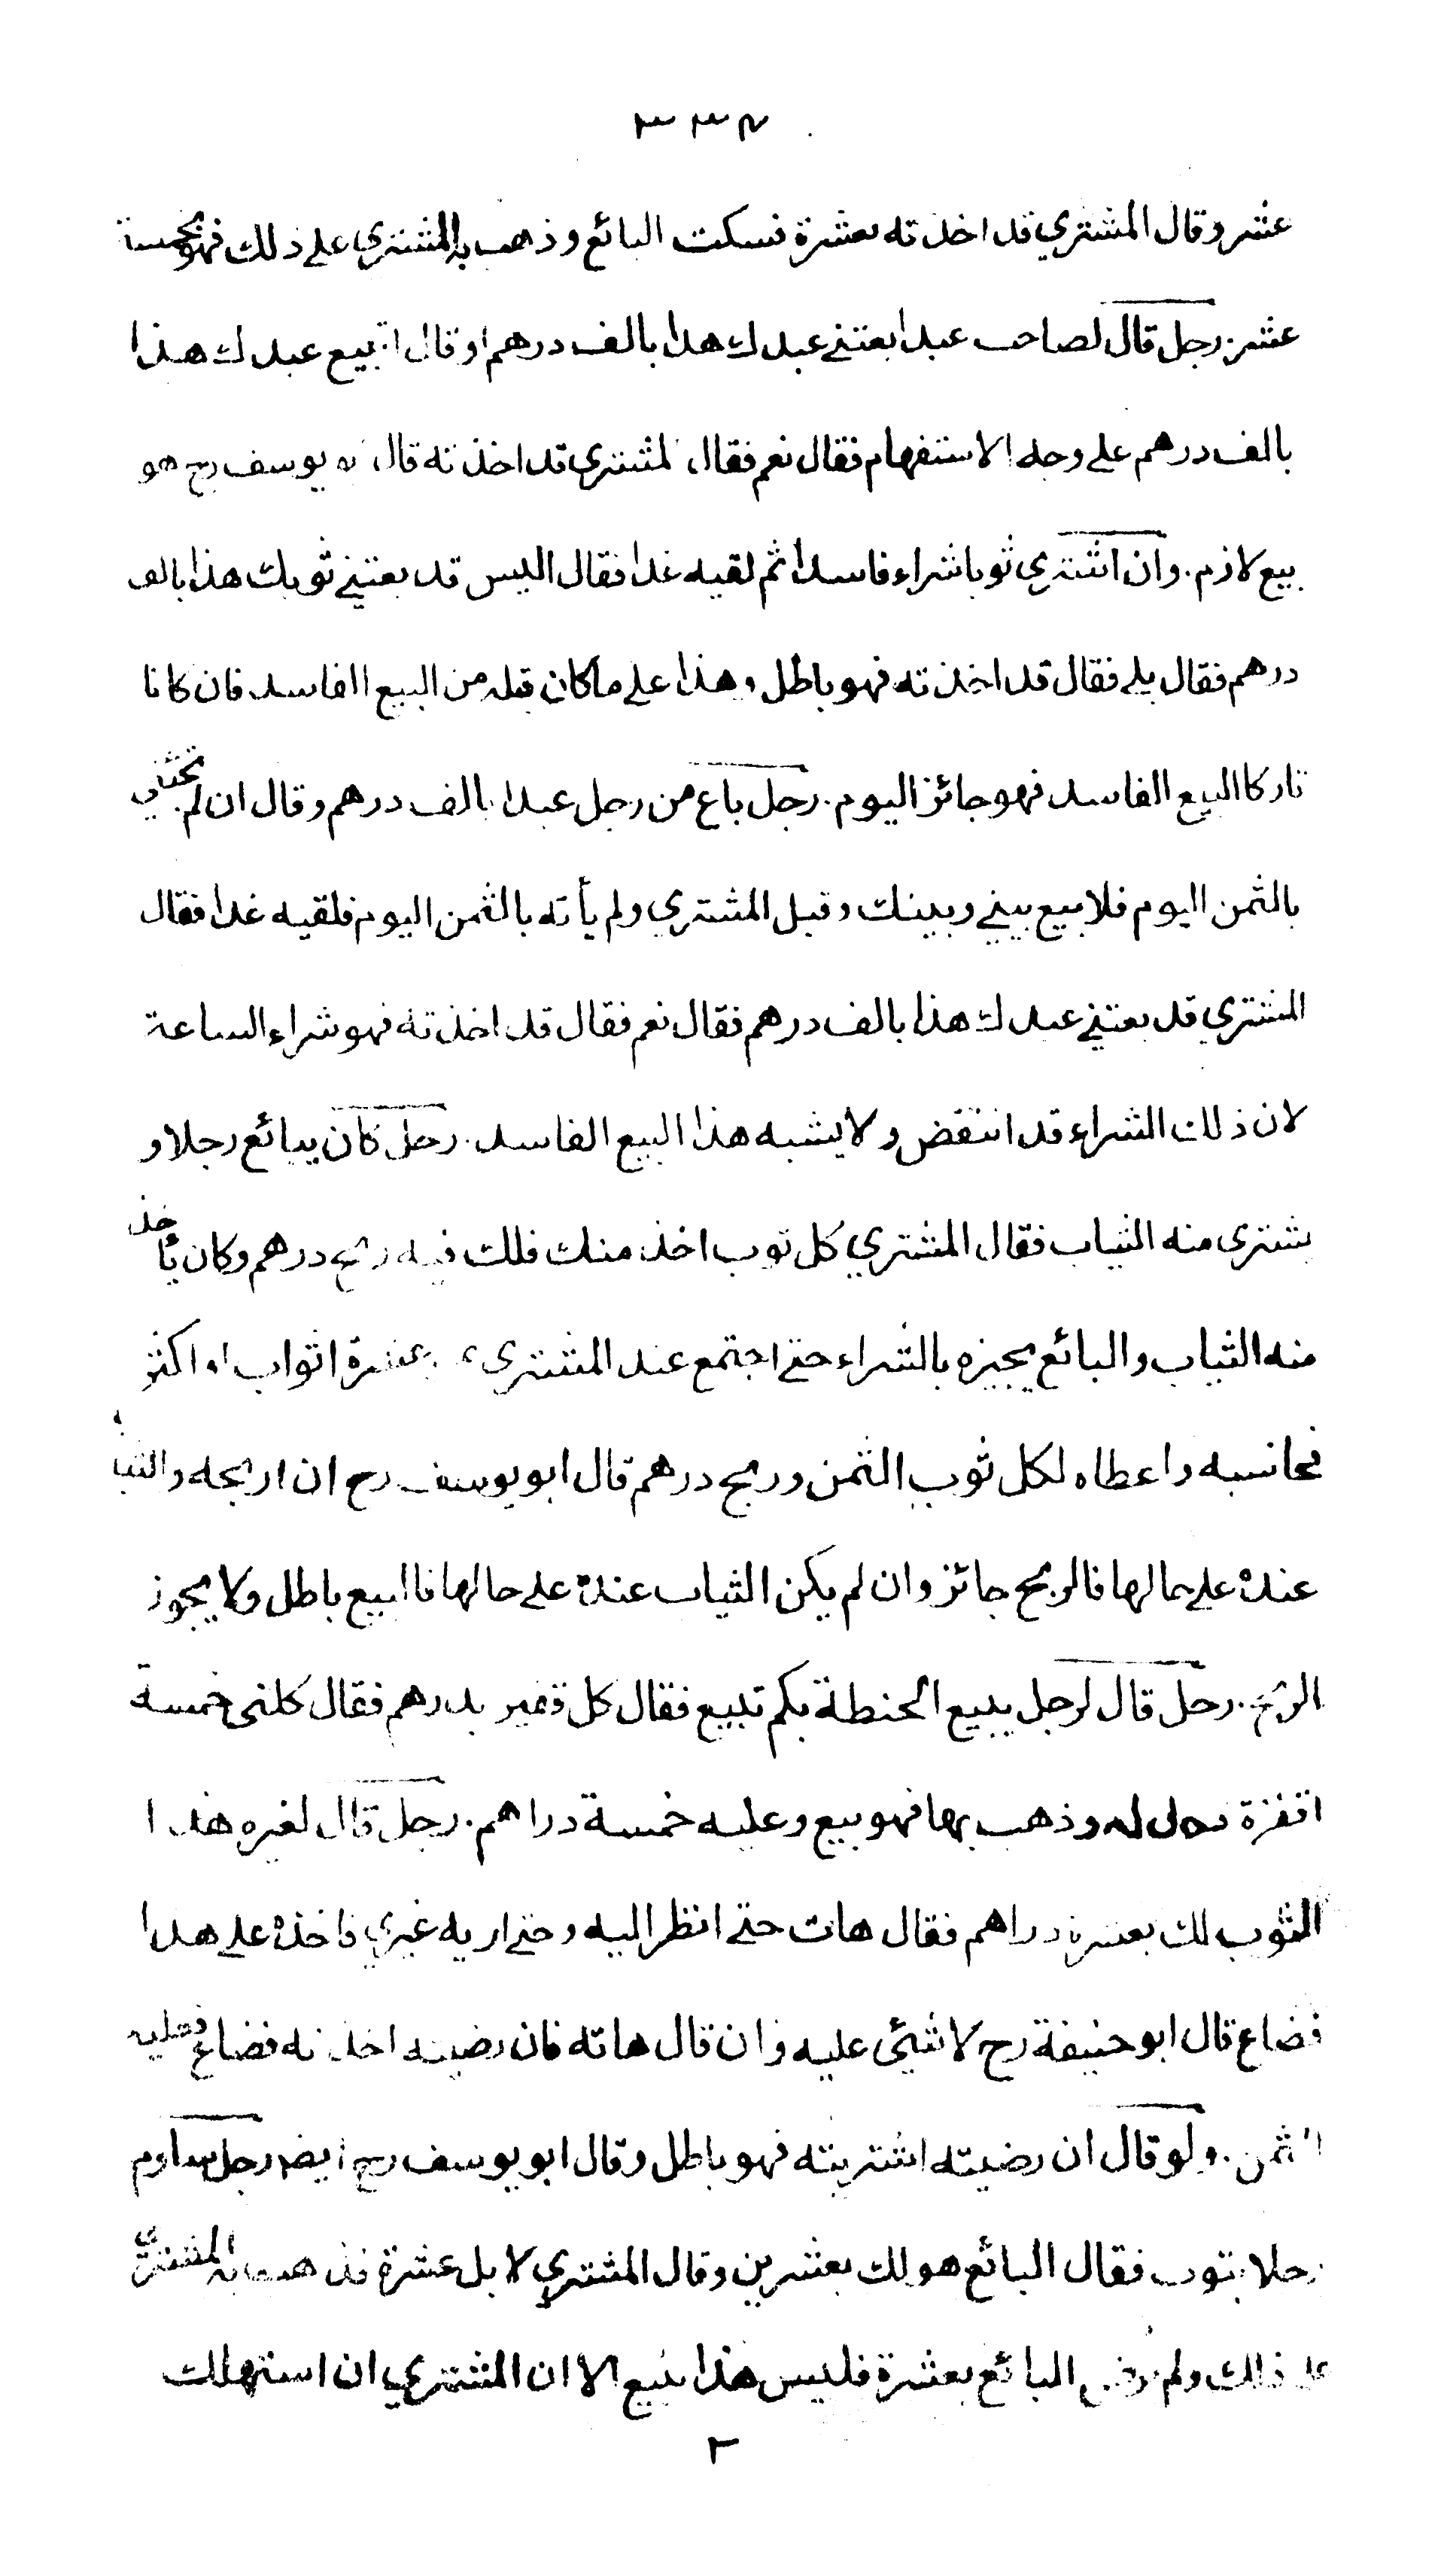 ٣٣٤
عشر وقال المشتري قد اخذته بعشرة فسكت البائع وذهب به المشتري على ذلك فهو بخمسة
عشر. رجل قال لصاحب عبد ابعتني عبدك هذا بالف درهم او قال اتبيع عبدك هذا
بالف درهم على وجه الاستفهام فقال نعم فقال المشتري قد اخذته قال ابو يوسف رح هو
بيع لازم. وان اشترى ثوبا شراء فاسدا ثم لقيه غدا فقال اليس قد بعتني ثوبك هذا بالف
درهم فقال بلى فقال قد اخذته فهو باطل وهذا على ما كان قبله من البيع الفاسد فان كانا
تاركا البيع الفاسد فهو جائز اليوم. رجل باع من رجل عبدا بالف درهم وقال ان لم تجئني
بالثمن اليوم فلا بيع بيني وبينك وقبل المشتري ولم يأته بالثمن اليوم فلقيه غدا فقال
المشتري قد بعتني عبدك هذا بالف درهم فقال نعم فقال قد اخذته فهو شراء الساعة
لان ذلك الشراء قد انتقض ولا يشبه هذا البيع الفاسد. رجل كان يبائع رجلا و
يشترى منه الثياب فقال المشتري كل ثوب اخذ منك فلك فيه ربح درهم وكان يأخذ
منه الثياب والبائع يجيزه بالشراء حتى اجتمع عند المشتري عشرة اثواب او اكثر
فحاسبه واعطاه لكل ثوب الثمن وربح درهم قال ابو يوسف رح ان اربحه والثياب
عنده على حالها فالربح جائز وان لم يكن الثياب عنده على حالها فالبيع باطل ولا يجوز
الربح. رجل قال لرجل يبيع الحنطة بكم تبيع فقال كل قفيز بدرهم فقال كلني خمسة
اقفزة فكال له وذهب بها فهو بيع وعليه خمسة دراهم. رجل قال لغيره هذا
الثوب لك بعشرة دراهم فقال هات حتى انظر اليه وحتى اريه غيري فاخذه على هذا
فضاع قال ابو حنيفة رح لا شيئ عليه وان قال هاته فان رضيته اخذته فضاع فعليه
الثمن. ولو قال ان رضيته اشتريته فهو باطل وقال ابو يوسف رح ايضا رجل ساوم
رجلا بثوب فقال البائع هو لك بعشرين وقال المشتري لا بل عشرة فذهب به المشتري
على ذلك ولم يرض البائع بعشرة فليس هذا ببيع الا ان المشتري ان استهلك
٢